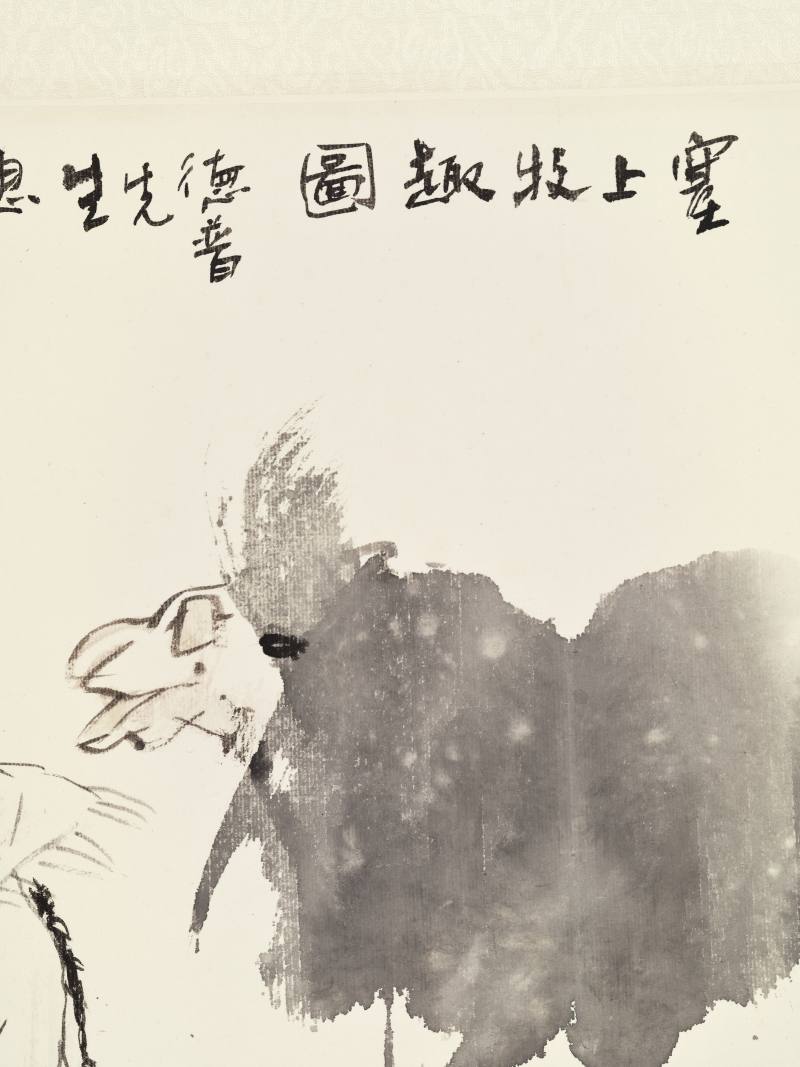 塞上牧趣圖
德普
先生惠